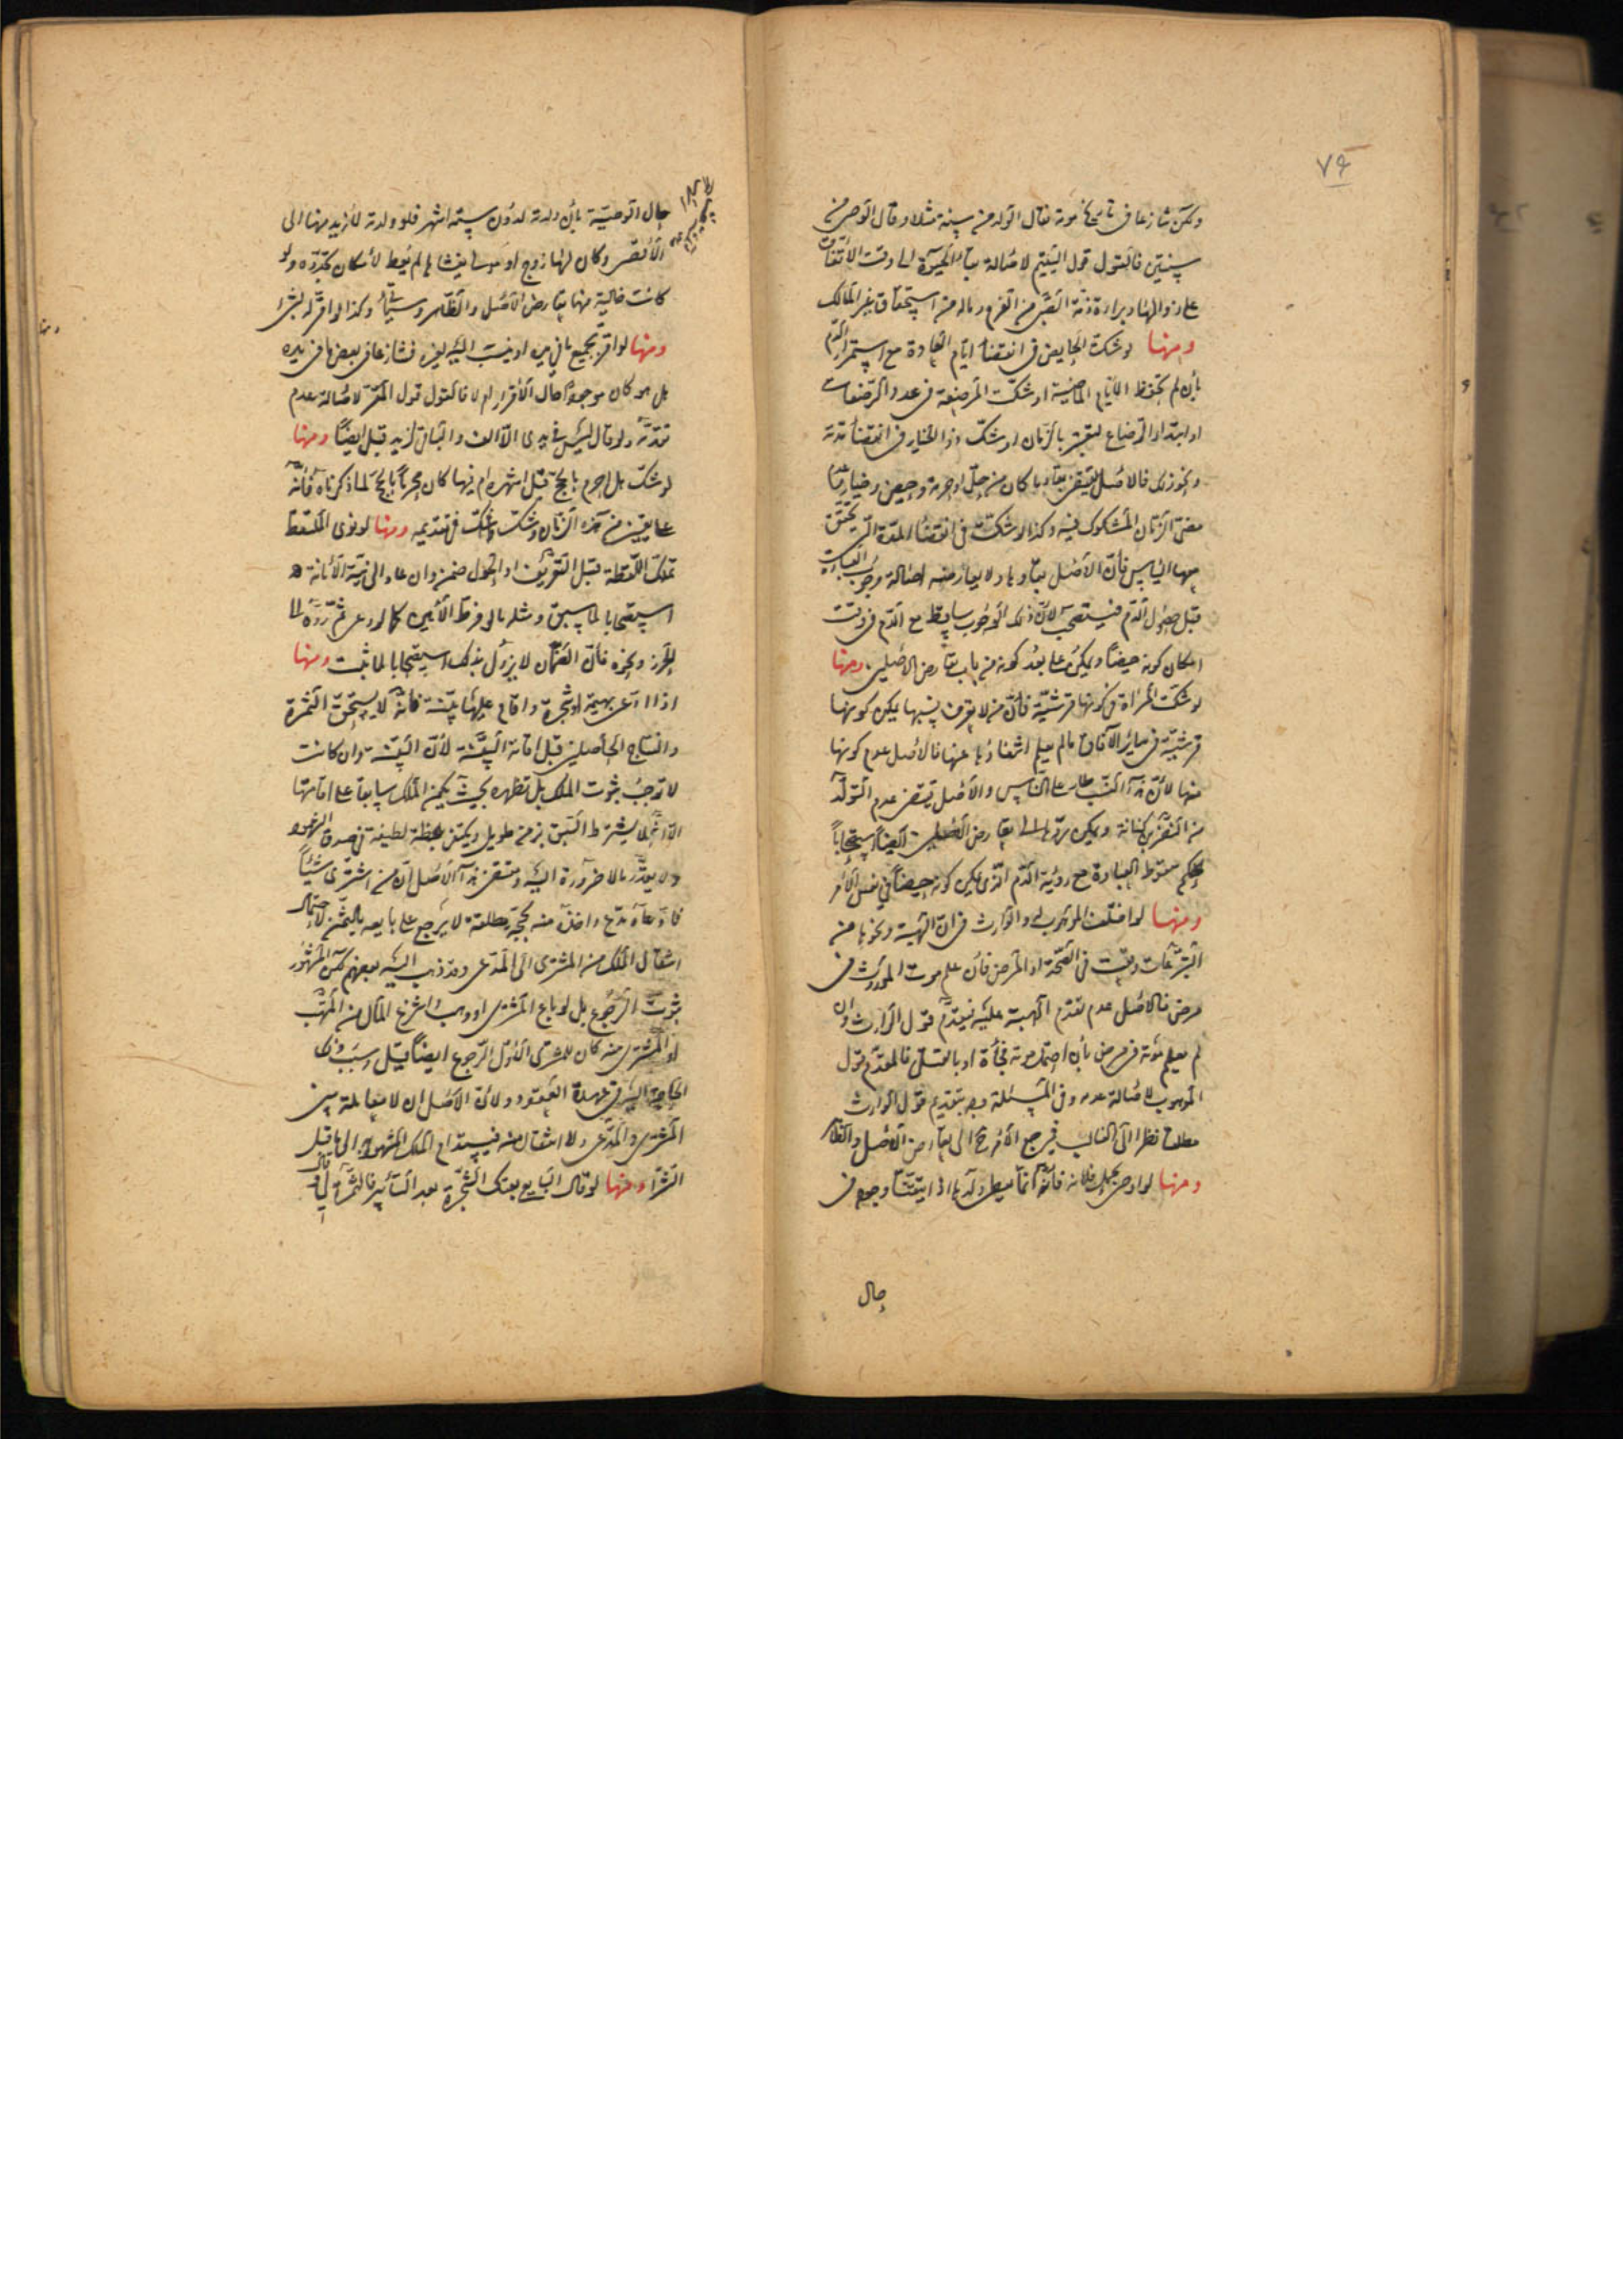 ٧٤
ولكن تنازعا في تاريخ موته فقال الولد من سنة مثلا وقال الوصي من
سنتين فالقول قول اليتيم لاصالة بقاء الحيوة الى وقت الاتفاق
على زوالها وبراءة ذمة الصبي من الغرم وماله من استحقاق غير المالك
ومنها لو شكت الحايض في انقضاء ايام العادة مع استمرار الدم
بأن لم تحفظ الايام الماضية او شكت المرضعة في عدد الرضعات
او ابتداء الرضاع ليعتبر بالزمان او شك ذو الخيار في انقضاء مدته
ونحو ذلك فالاصل يقتضي بقاء ما كان من حل او حرمة وحيض وخيار
مضي الزمان المشكوك فيه وكذا لو شكت في انقضاء المدة التي يتحقق
بها اليأس فان الاصل بقاؤها ولا يعارضه اصالة وجوب العبادة
قبل حصول الدم فيستصحب لأن ذلك الوجوب ساقط مع الدم في وقت
امكان كونه حيضا ويمكن على بعد كونه من باب تعارض الاصلين ومنها
لو شكت المرأة في كونها قرشية فان من لا يعرف نسبها يمكن كونها
قرشية في ساير الآفاق ما لم يعلم انتفاؤها عنها فالاصل عدم كونها
منها لأن هذا النسب طار على الناس والاصل يقتضي عدم التولد
من النضر بن كنانة ويمكن رده الى تعارض الاصلين ايضا استصحابا
لحكم سقوط العبادة مع رؤية الدم الذي يمكن كونه حيضا في نفس الامر
ومنها لو اختلف الموهوب له والوارث في ان الهبة ونحوها من
التبرعات وقعت في الصحة او المرض فان علم موت المورث في
مرض فالاصل عدم تقدم الهبة عليه فيقدم قول الوارث وان
لم يعلم موته في مرض بأن احتمل موته فجأة او بالقتل فالمقدم قول
الموهوب لاصالة عدمه وفي المسئلة وجه بتقديم قول الوارث
مطلقا نظرا الى الغالب فيرجع الامر الى تعارض الاصل والظاهر
ومنها لو اوصى بحمل فلانة فانه انما يعطى ولدها اذا تيقنا وجوده في
حال
حال الوصية بأن ولدته لدون ستة اشهر فلو ولدته لأزيد منها الى
الاقصى وكان لها زوج او مولى يغشاها لم يعط لامكان تجدده ولو
كانت خالية منها تعارض الاصل والظاهر وسيأتي وكذا لو اقر له بشراء
ومنها لو اقر بجميع ما في يده او ينسب اليه لغيره فتنازعا في بعض ما في يده
هل هو كان موجودا حال الاقرار ام لا فالقول قول المقر لاصالة عدم
تقدمه ولو قال ليس في يدي الا الف والباقي لزيد قبل ايضا ومنها
لو شك هل احرم بالحج قبل اشهره ام فيها كان محرما بالحج لما ذكرناه فانه
على يقين من هذه الزمان وشك في تقديمه ومنها لو نوى الملتقط
تملك اللقطة قبل التعريف او الحول ضمن وان عاد الى نية الامانة
استصحابا لما سبق ومثله ما لو فرط الامين كالمودع ثم رده الى
الحرز ونحوه فان الضمان لا يزول بذلك استصحابا لما ثبت ومنها
اذا ادعى بهيمة او شجرة واقام عليها بينة فانه لا يستحق الثمرة
والنتاج الحاصلين قبل اقامة البينة لأن البينة وان كانت
لا توجب ثبوت الملك بل تظهره بحيث يكون الملك سابقا على اقامتها
الا انه لا يشترط السبق بزمن طويل ويكتفى بلحظة لطيفة في صدق الشهود
ولا يقدر ما لا ضرورة اليه ومقتضى هذا الاصل ان من اشترى شيئا
فادعاه مدع واخذه منه بحجة مطلقة لا يرجع على بايعه بالثمن لاحتمال
انتقال الملك من المشتري الى المدعي وقد ذهب اليه بعضهم لكن المشهور
ثبوت الرجوع بل لو باع المشتري او وهب وانتزع المال من المتهب
او المشتري منه كان للمشتري الاول الرجوع ايضا قيل وسبب ذلك
الحاجة اليه في عهدة العقود ولأن الاصل ان لا معاملة بين
المشتري والمدعي ولا انتقال منه فيستدام الملك المشهود به الى ما قبل
الشراء ومنها لو قال البايع بعتك الشجرة بعد التأبير فالثمرة لي وقال